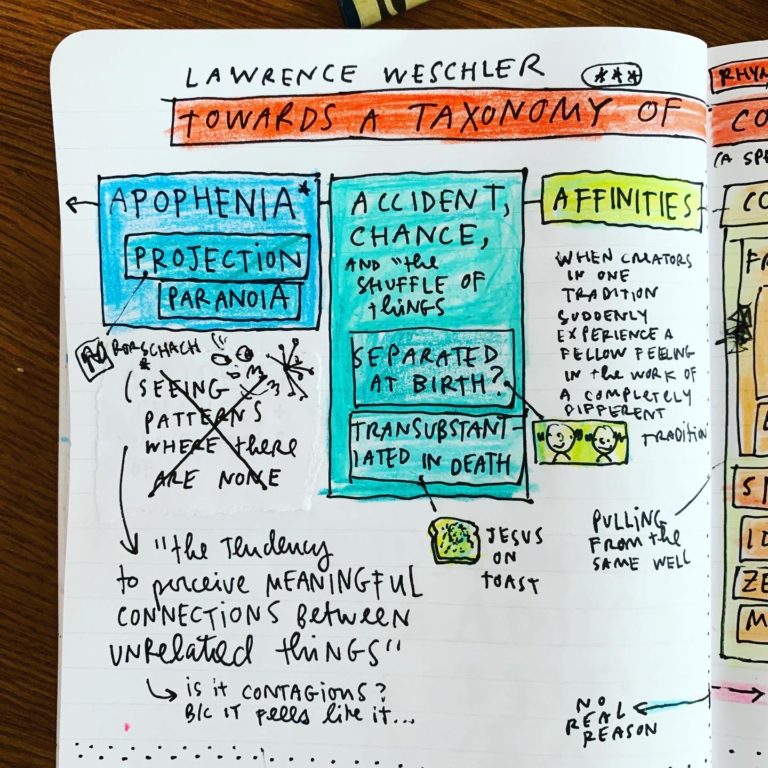 LAWRENCE WESCHLER ***
TOWARDS A TAXONOMY OF
APOPHENIA*
PROJECTION
PARANOIA
RORSCHACH
*
(SEEING
PATTERNS
WHERE there
ARE NONE
"the TENDENCY
to perceive MEANINGFUL
CONNECTIONS BETWEEN
UNRELATED things"
IS IT CONTAGIONS?
B/C IT FEELS LIKE IT...
ACCIDENT,
CHANCE,
AND "the
SHUFFLE OF
things
SEPARATED
AT BIRTH?
TRANSUBSTANT-
IATED IN DEATH
JESUS
ON
TOAST
AFFINITIES
WHEN CREATORS
IN ONE
TRADITION
SUDDENLY
EXPERIENCE A
FELLOW FEELING
IN the WORK OF
A COMPLETELY
DIFFERENT
TRADITION
PULLING
FROM the
SAME WELL
NO
REAL
REASON
RHYM
CO
(A SPE
CO
FR
SI
ID
ZE
M